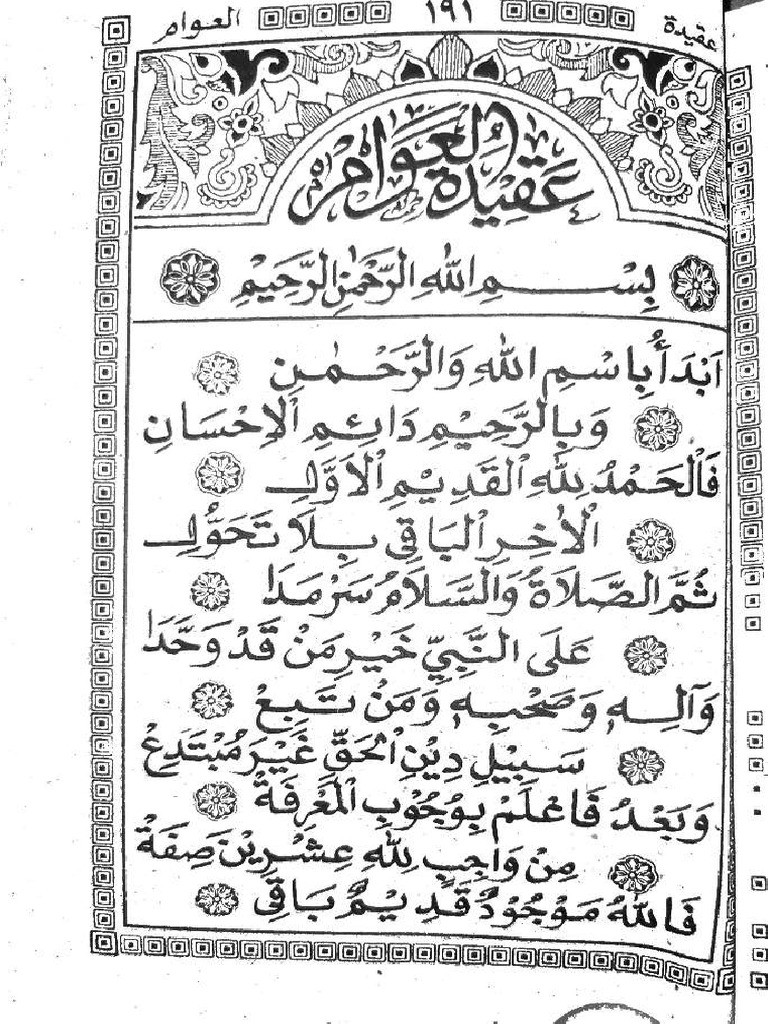 عقيدة ١٩١ العوام
عَقِيدَةُ الْعَوَامِ
بِسْمِ اللهِ الرَّحْمٰنِ الرَّحِيْمِ
اَبْدَأُ بِاسْمِ اللهِ وَالرَّحْمٰنِ
وَبِالرَّحِيْمِ دَائِمِ اْلاِحْسَانِ
فَالْحَمْدُ لِلّٰهِ الْقَدِيْمِ اْلاَوَّلِ
اْلاٰخِرِ الْبَاقِى بِلاَ تَحَوُّلِ
ثُمَّ الصَّلاَةُ وَالسَّلاَمُ سَرْمَدَا
عَلَى النَّبِيِّ خَيْرِ مَنْ قَدْ وَحَّدَا
وَآلِهِ وَصَحْبِهِ وَمَنْ تَبِعْ
سَبِيْلَ دِيْنِ الْحَقِّ غَيْرَ مُبْتَدِعْ
وَبَعْدُ فَاعْلَمْ بِوُجُوْبِ الْمَعْرِفَةْ
مِنْ وَاجِبٍ لِلّٰهِ عِشْرِيْنَ صِفَةْ
فَاللهُ مَوْجُوْدٌ قَدِيْمٌ بَاقِى